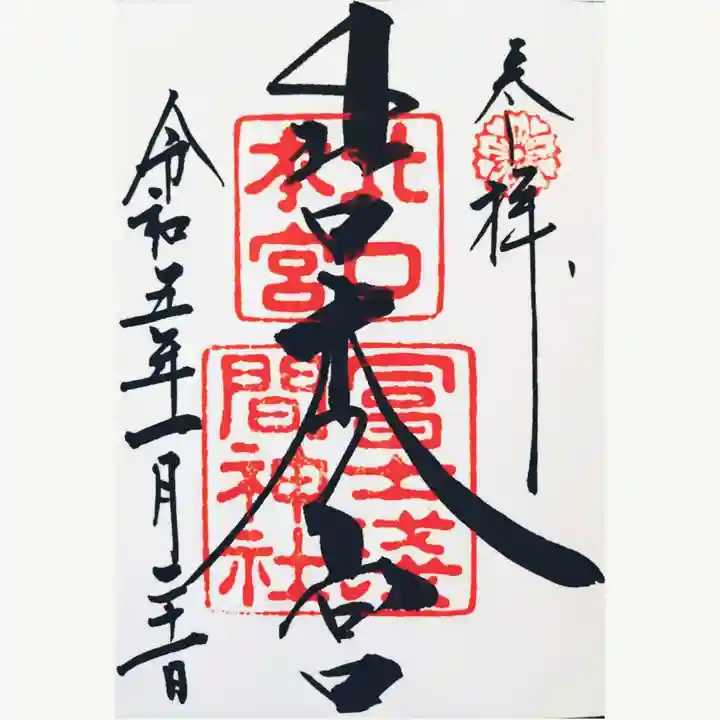 奉拝
北口本宮
北口
本宮
冨士淺
間神社
令和五年一月二十一日